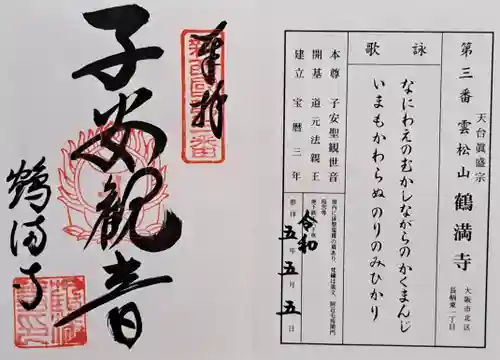 第三番
天台眞盛宗
雲松山 鶴満寺
大阪市北区
長柄東一丁目
詠歌
なにわえのむかしながらのかくまんじ
いまもかわらぬのりのみひかり
本尊 子安聖観世音
開基 道元法親王
建立 宝暦三年
令和
五年五月五日
奉拝
子安観音
鶴満寺